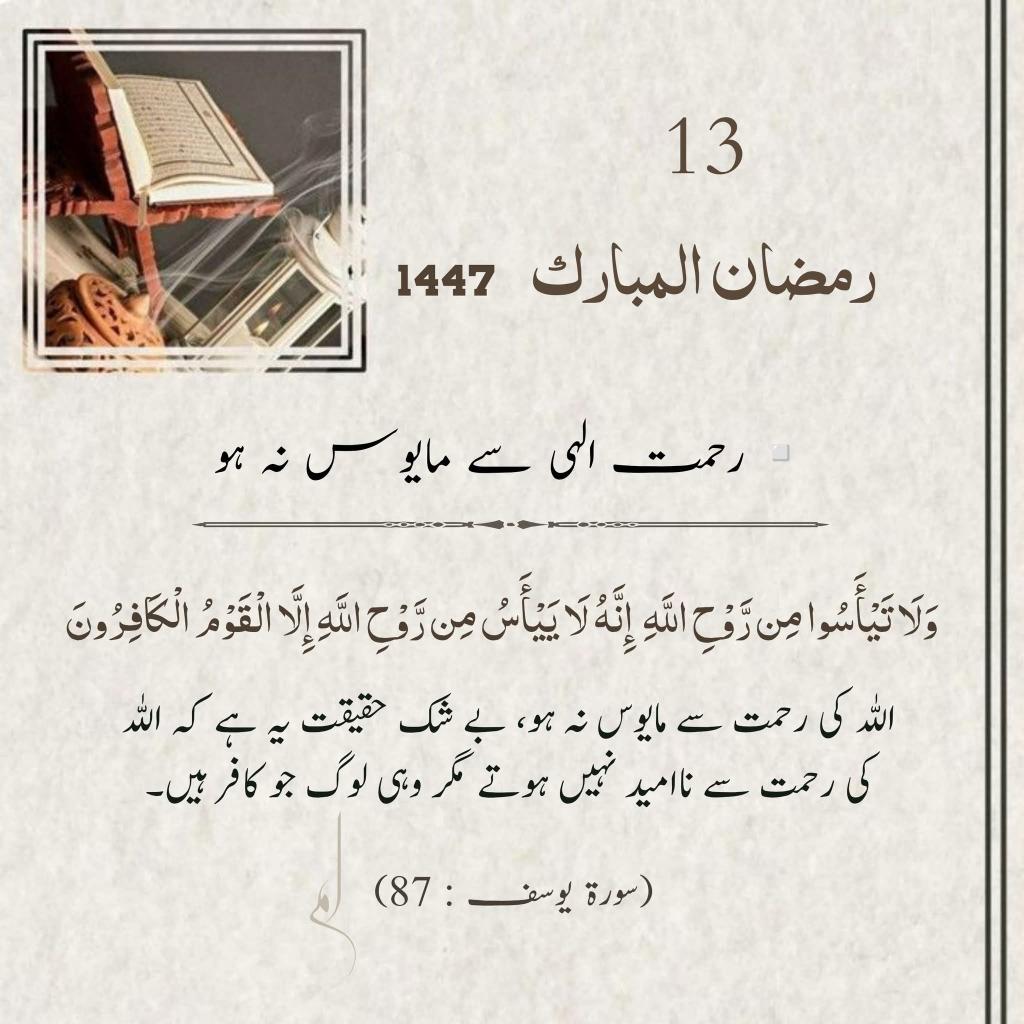 13
رمضان المبارك 1447
رحمت الہی سے مایوس نہ ہو
وَلَا تَيْأَسُوا مِن رَّوْحِ اللَّهِ إِنَّهُ لَا يَيْأَسُ مِن رَّوْحِ اللَّهِ إِلَّا الْقَوْمُ الْكَافِرُونَ
اللہ کی رحمت سے مایوس نہ ہو، بے شک حقیقت یہ ہے کہ اللہ
کی رحمت سے ناامید نہیں ہوتے مگر وہی لوگ جو کافر ہیں۔
(سورۃ یوسف : 87)